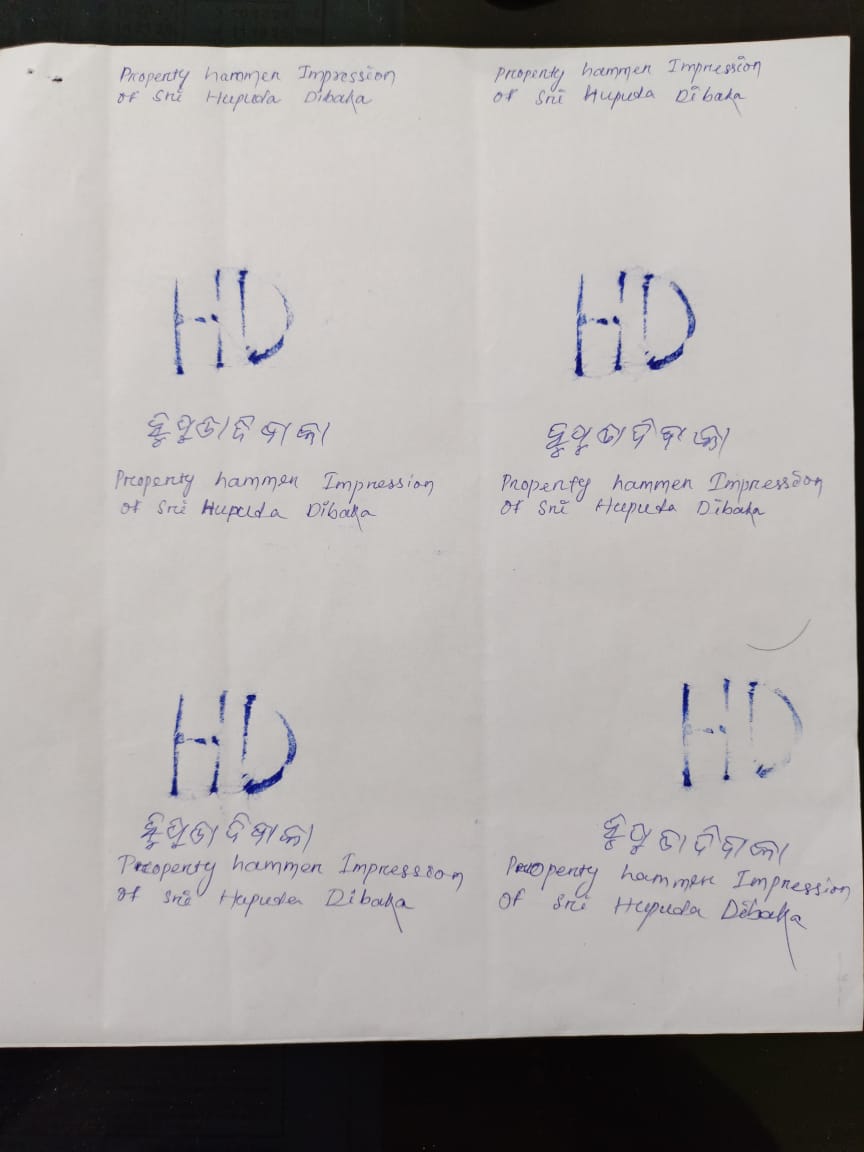 Property hammer Impression
of Sri Hupuda Dibaka
Property hammer Impression
of Sri Hupuda Dibaka
HD
HD
ହୁପୁଡା ଦିବାକା
ହୁପୁଡା ଦିବାକା
Property hammer Impression
of Sri Hupuda Dibaka
Property hammer Impression
of Sri Hupuda Dibaka
HD
HD
ହୁପୁଡା ଦିବାକା
ହୁପୁଡା ଦିବାକା
Property hammer Impression
of Sri Hupuda Dibaka
Property hammer Impression
of Sri Hupuda Dibaka